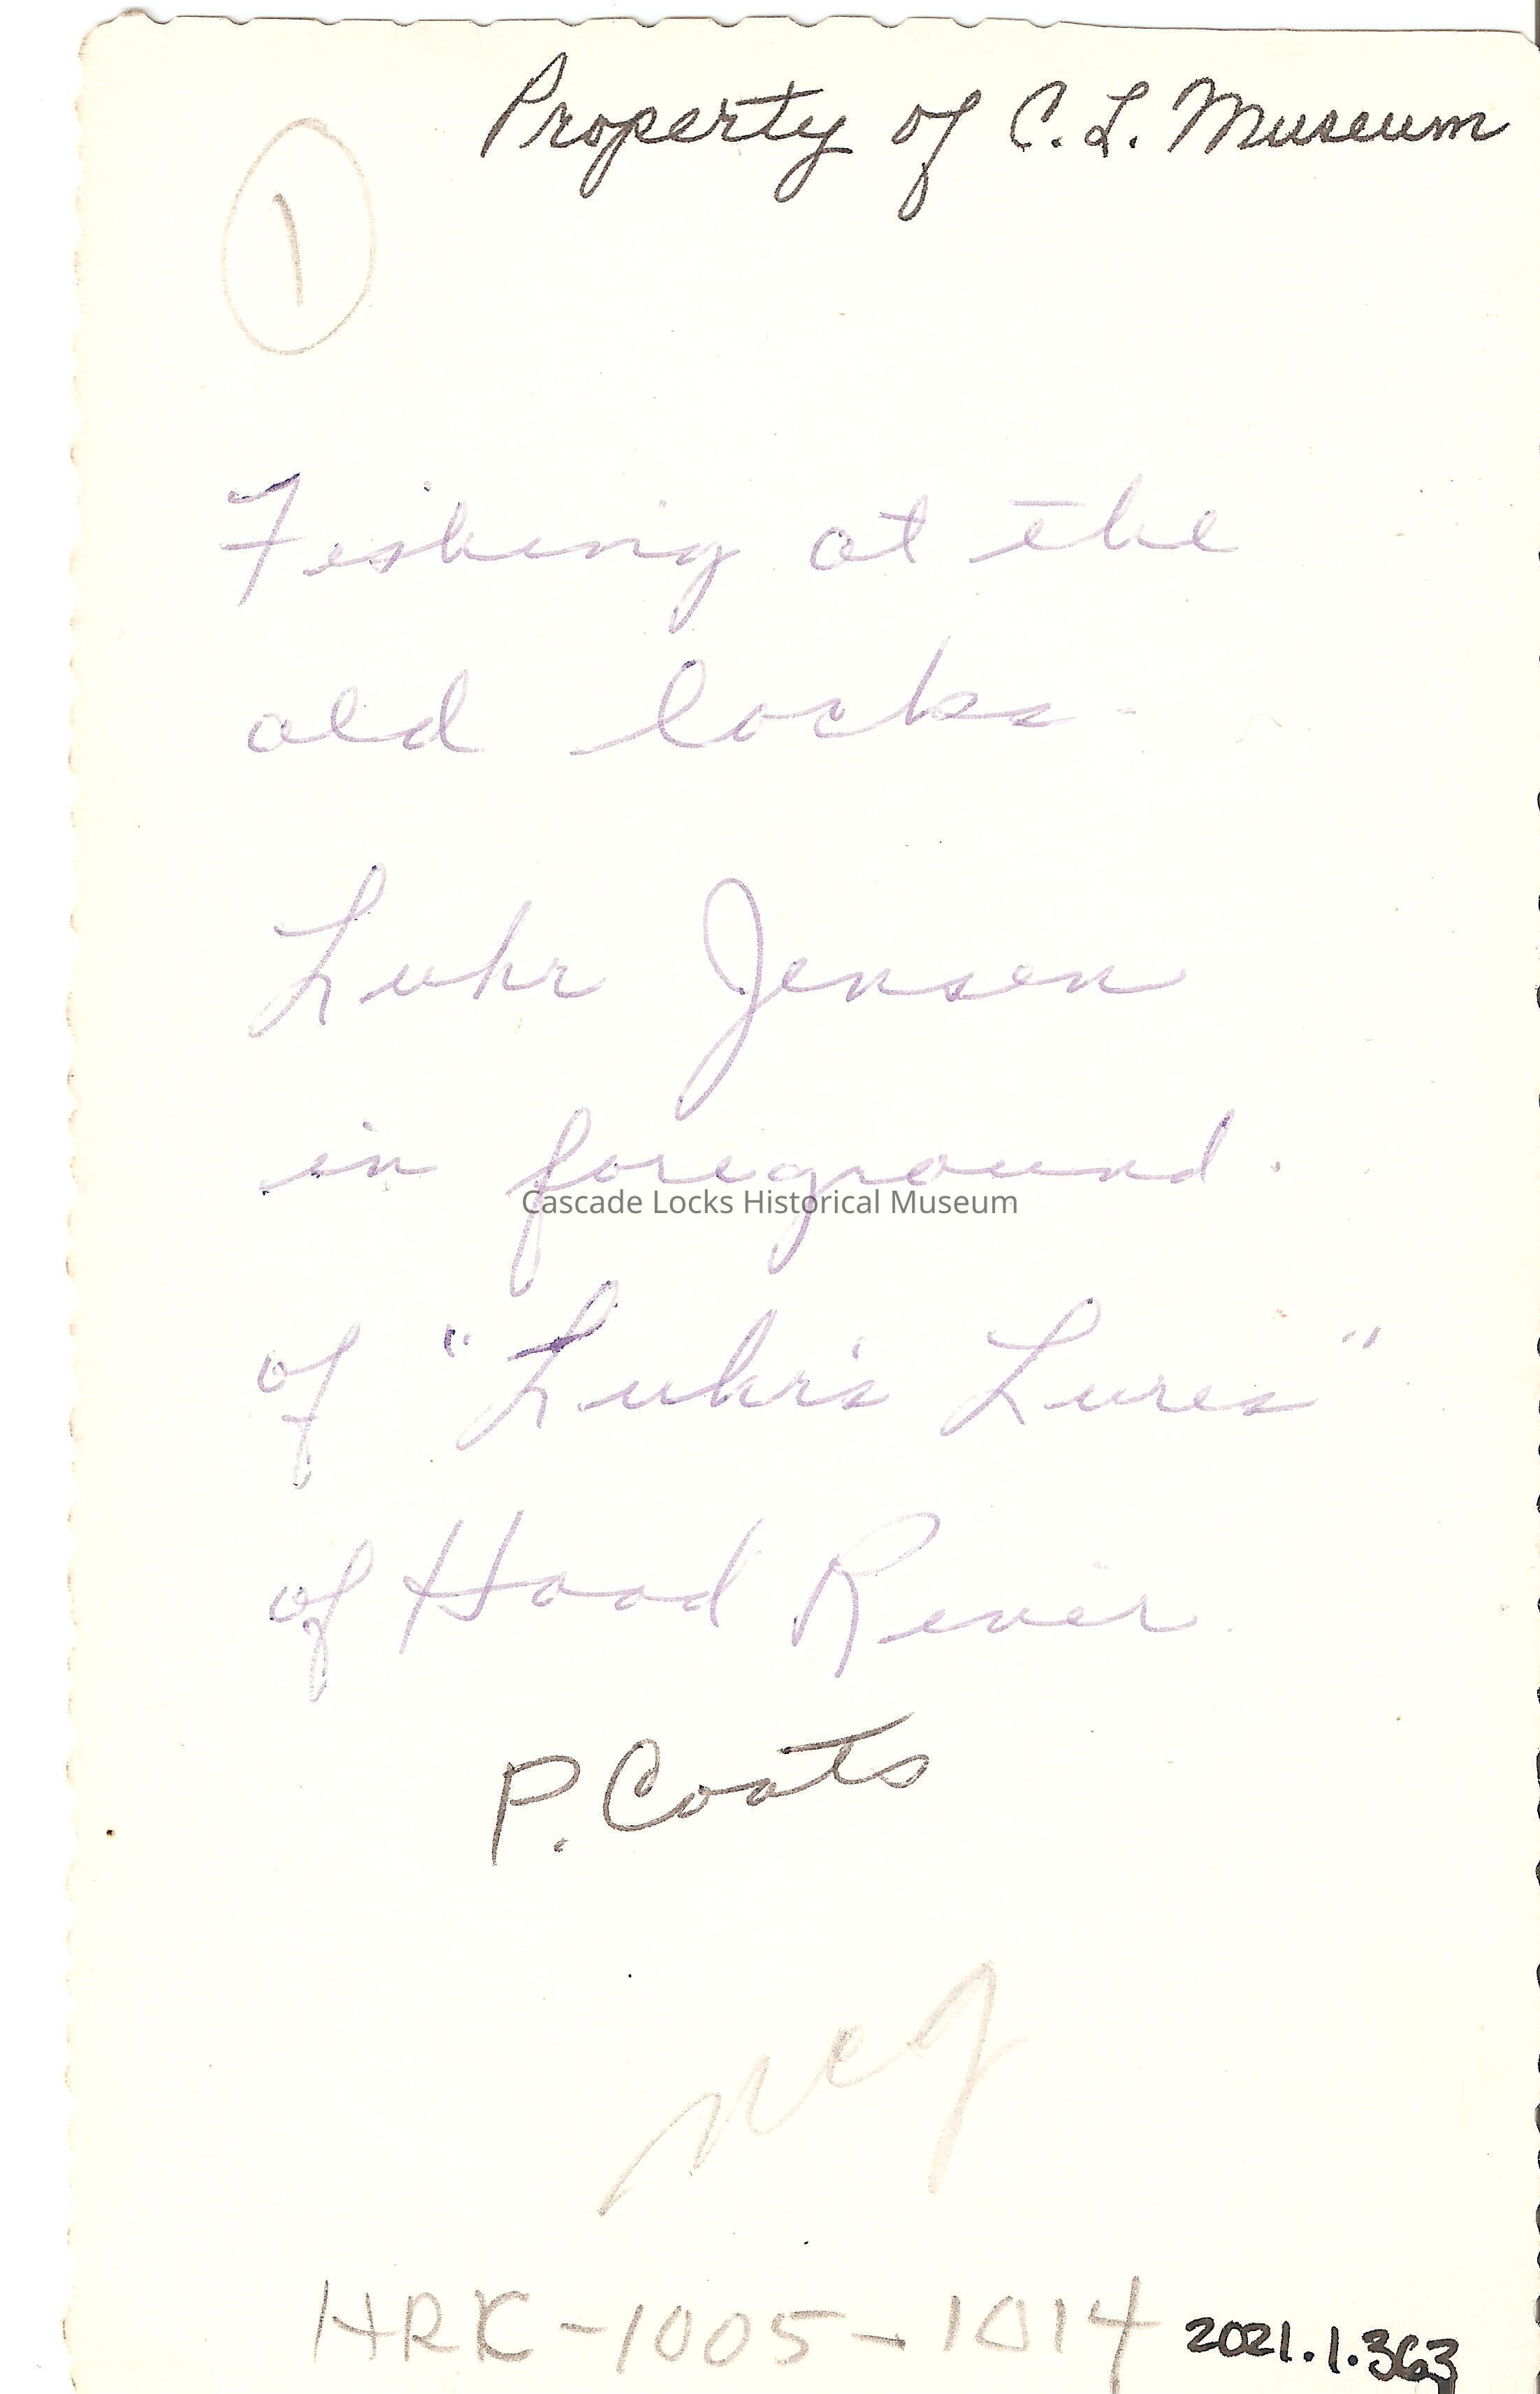 Property of C. L. Museum
1
Fishing at the
old locks-
Luhr Jensen
in foreground.
Cascade Locks Historical Museum
of "Luhr's Lures"
of Hood River.
P. Coats
neg
HRK-1005-1014 2021.1.363